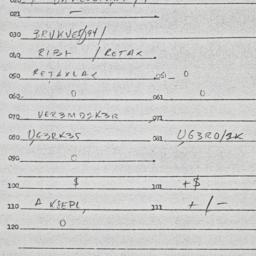 021 –
030 3RVKVE0/94/
040 RIBX / RETAX
050 RETAXLAX 051 0
060 0 061 0
070 VER3MDSK3R 071
080 UG3RK35 081 UG3RO/2K
090 0
100 $ 101 +$
110 A KSEPL 111 +/–
120 0